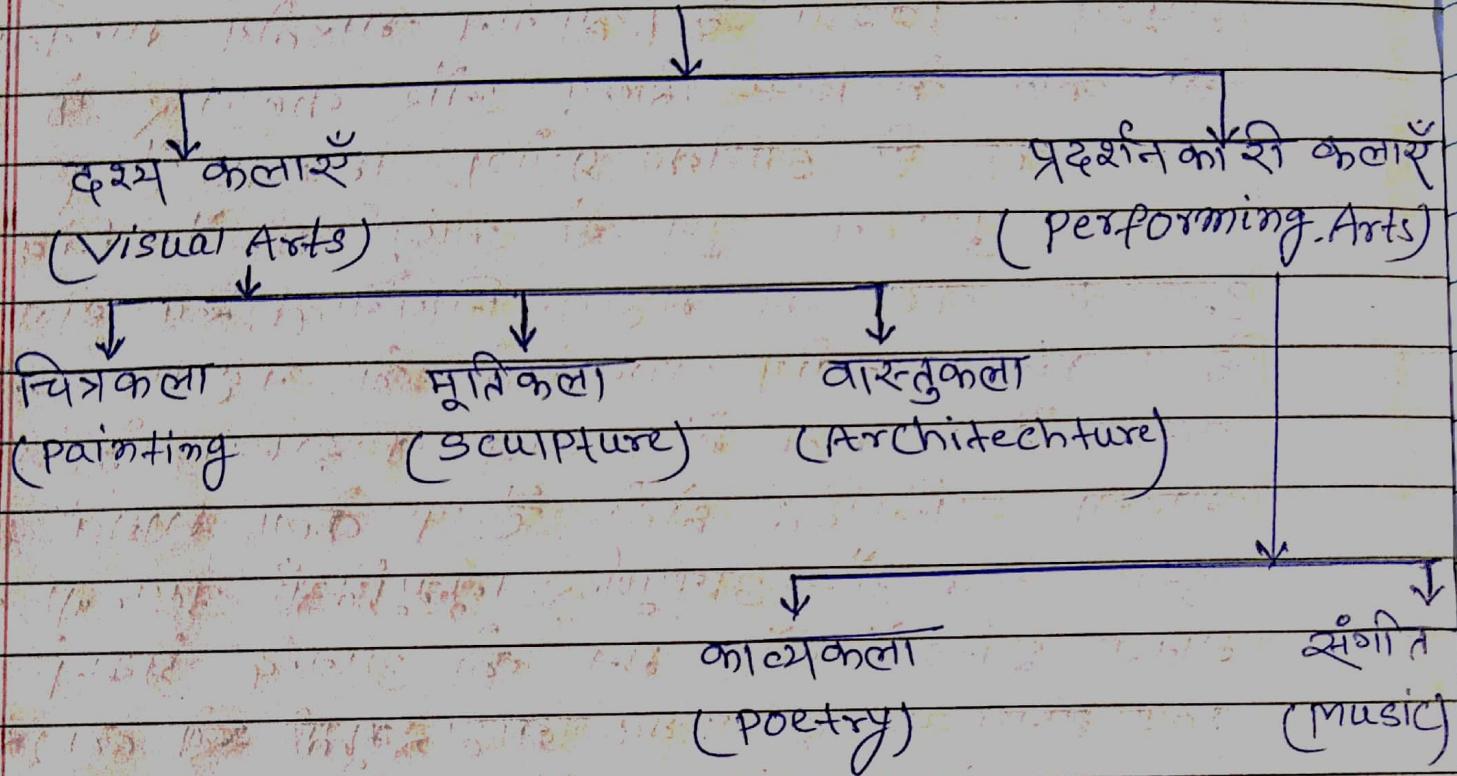 दश्य कलाएँ
(Visual Arts)
प्रदर्शन कारी कलाएँ
(Performing Arts)
चित्रकला
(Painting
मूर्तिकला
(Sculpture)
वास्तुकला
(Architechture)
काव्यकला
(Poetry)
संगीत
(Music)